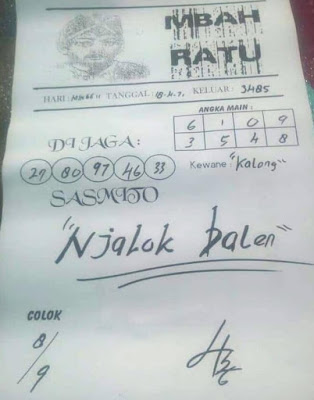 MBAH
RATU
HARI: TANGGAL: KELUAR: 3485
ANGKA MAIN :
6 1 0 9
3 5 4 8
DI JAGA :
27 80 97 46 33
Kewane: "Kalong"
SASMITO
"Njalok balen"
COLOK
8/9